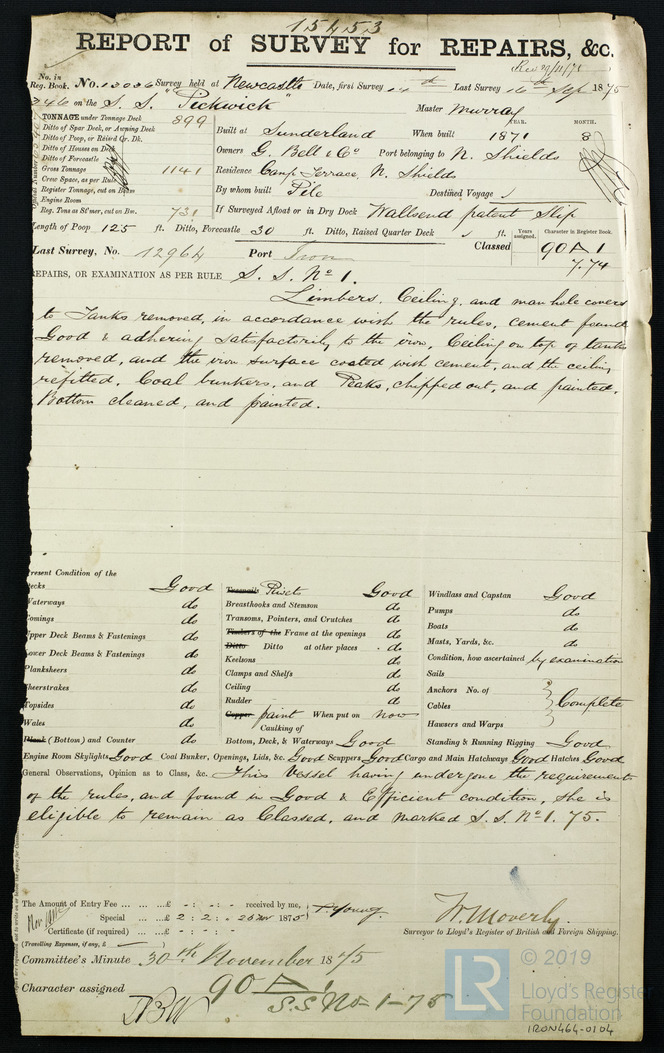 15453
REPORT of SURVEY for REPAIRS, &c.
Rec 29/11/75
No. in Reg. Book. No. 13036 Survey held at Newcastle Date, first Survey 14th Last Survey 16th Sep 1875
346 on the S. S. "Pickwick" Master Murray
TONNAGE under Tonnage Deck 899
Ditto of Spar Deck, or Awning Deck
Ditto of Poop, or Raised Qr. Dk.
Ditto of Houses on Deck
Ditto of Forecastle
Gross Tonnage 1141
Crew Space, as per Rule
Register Tonnage, cut on Beam
Engine Room
Reg. Tons as St'mer, cut on Bm. 731
YEAR. MONTH.
Built at Sunderland When built 1871 8
Owners G. Bell & Co Port belonging to N. Shields
Residence Camp Terrace, N. Shields
By whom built Pile Destined Voyage
If Surveyed Afloat or in Dry Dock Wallsend patent Slip
Length of Poop 125 ft. Ditto, Forecastle 30 ft. Ditto, Raised Quarter Deck ft.
Years assigned. Character in Register Book.
Last Survey, No. 12964 Port Iron Classed 90 A 1
7.74
REPAIRS, OR EXAMINATION AS PER RULE S. S. No 1.
Limbers, Ceiling, and man hole covers
to Tanks removed, in accordance with the rules, cement found
Good & adhering satisfactorily to the iron. Ceiling on top of tanks
removed, and the iron surface coated with cement, and the ceiling
refitted. Coal bunkers, and Peaks, chipped out, and painted.
Bottom cleaned, and painted.
Present Condition of the
Decks Good
Waterways do
Comings do
Upper Deck Beams & Fastenings do
Lower Deck Beams & Fastenings do
Planksheers do
Sheerstrakes do
Topsides do
Wales do
Plank (Bottom) and Counter do
Treenails Rivets Good
Breasthooks and Stemson do
Transoms, Pointers, and Crutches do
Timbers of the Frame at the openings do
Ditto Ditto at other places do
Keelsons do
Clamps and Shelfs do
Ceiling do
Rudder do
Copper paint When put on now
Caulking of
Bottom, Deck, & Waterways Good
Windlass and Capstan Good
Pumps do
Boats do
Masts, Yards, &c. do
Condition, how ascertained by examination
Sails
Anchors No. of
Cables Complete
Hawsers and Warps
Standing & Running Rigging Good
Engine Room Skylights Good Coal Bunker, Openings, Lids, &c. Good Scuppers Good Cargo and Main Hatchways Good Hatches Good
General Observations, Opinion as to Class, &c. This Vessel having undergone the requirements
of the rules, and found in Good & Efficient condition, she is
eligible to remain as Classed, and marked S. S. No 1. 75.
The Amount of Entry Fee ... ... ...£ - : - : - received by me,
Special ... ...£ 2 : 2 : - 26 Nov 1875 T. Young
Certificate (if required) ... ...£ - : - : -
(Travelling Expenses, if any, £ )
W. Moverly.
Surveyor to Lloyd's Register of British and Foreign Shipping.
Committee's Minute 30th November 1875
Character assigned 90 A 1
S.S No-1-75
© 2019
LR
Lloyd's Register
Foundation
IRON464-0104